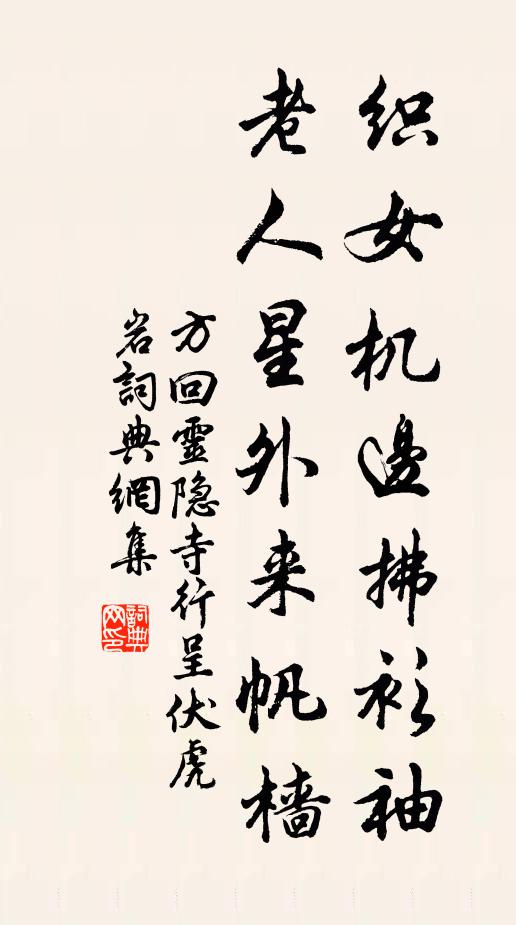 织女机邊拂衫袖
老人星外来帆樯
方回靈隐寺行呈伏虎
岩詞典網集
詞典网印